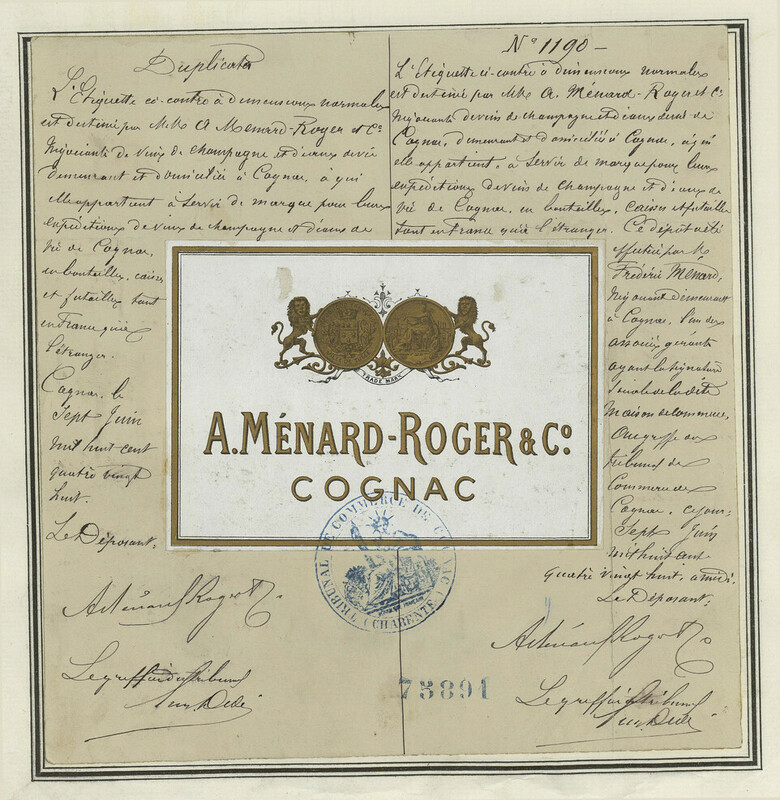 Duplicata
L'Etiquette ci-contre à dimensions normales
est destinée par M.M. A Ménard-Roger et Cº
Négociants de vins de champagne et d'eaux de vie
demeurant et domiciliés à Cognac, à qui
elle appartient à servir de marque pour leurs
expéditions de vins de champagne et d'eaux de
vie de Cognac,
en bouteilles, caisses
et futailles tant
en France qu'à
l'étranger.
Cognac, le
Sept Juin
mil huit cent
quatre vingt
huit.
Le Déposant.
A. Ménard Roger & Co
Le greffier du tribunal
Nº 1190 -
L'Etiquette ci-contre à dimensions normales
est destinée par M.M. A. Ménard-Roger et Cº
Négociants de vins de champagne et d'eaux de vie de
Cognac, demeurant et domiciliés à Cognac, à qui
elle appartient, à servir de marque pour leurs
expéditions de vins de champagne et d'eaux de
vie de Cognac, en bouteilles, caisses et futailles
tant en France qu'à l'étranger. Ce dépôt a été
effectué par M.
Frédéric Ménard,
Négociant demeurant
à Cognac, l'un des
associés gérants
ayant la signature
sociale de la dite
Maison de commerce,
au greffe du
tribunal de
Commerce de
Cognac, ce jour:
Sept Juin
mil huit cent
quatre vingt huit, à midi.
Le Déposant:
A. Ménard Roger & Co
Le greffier du tribunal
TRADE MARK
A. MÉNARD-ROGER & Cº
COGNAC
TRIBUNAL DE COMMERCE DE COGNAC
(CHARENTE)
75891